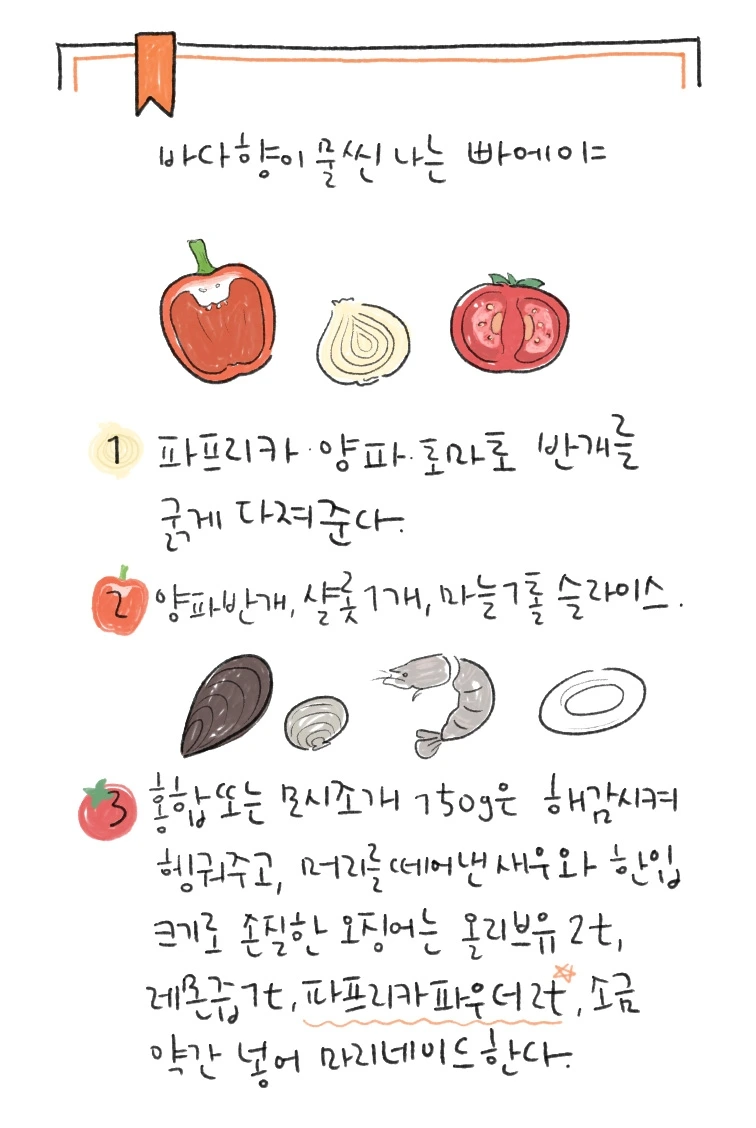 바다향이 물씬 나는 빠에이야
1 파프리카·양파·토마토 반개를
굵게 다져준다.
2 양파반개, 샬롯1개, 마늘1톨 슬라이스.
3 홍합또는 모시조개 150g은 해감시켜
헹궈주고, 머리를떼어낸새우와 한입
크기로 손질한 오징어는 올리브유 2t,
레몬즙1t, 파프리카파우더2t, 소금
약간 넣어 마리네이드한다.